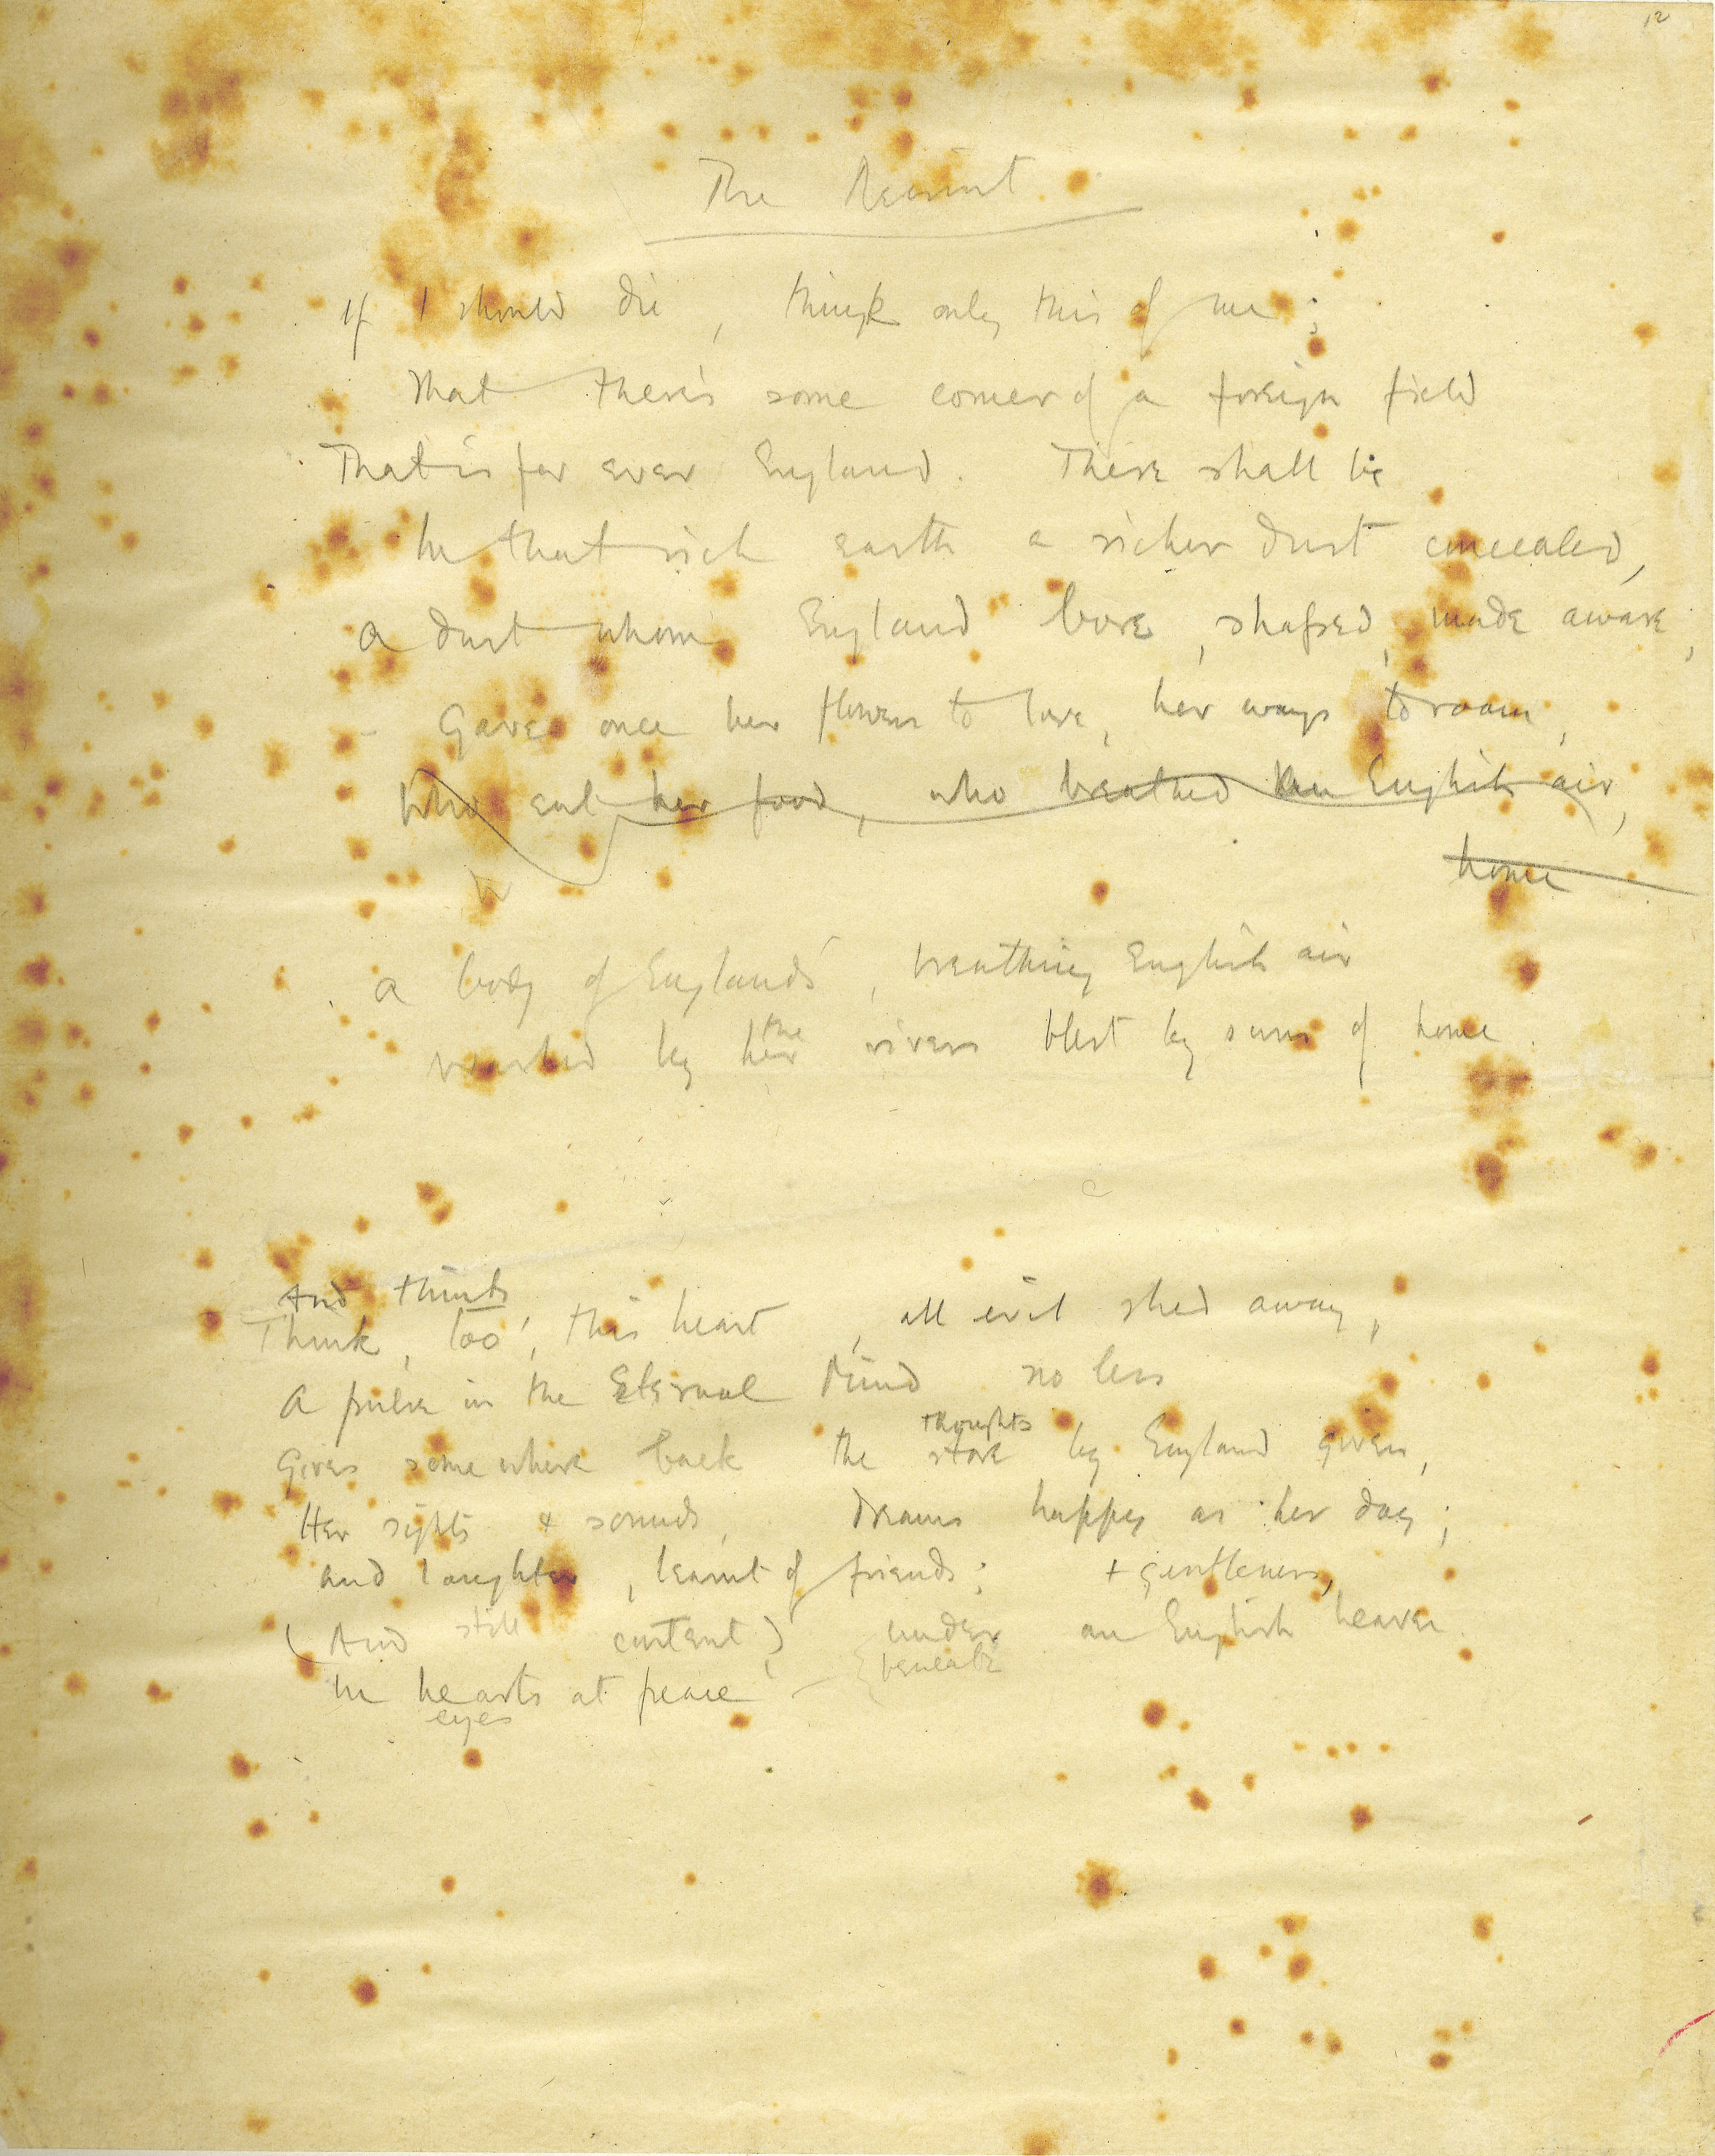 12
The Recruit
If I should die, think only this of me;
That there's some corner of a foreign field
That is for ever England. There shall be
In that rich earth a richer dust concealed,
A dust whom England bore, shaped, made aware,
Gave once her flowers to love, her ways to roam,
Who eat her food, who breathed her English air,
home
A body of England's, breathing English air
washed by her rivers blest by suns of home.
the
And think
Think, too, this heart, all evil shed away,
A pulse in the Eternal Mind no less
thoughts
Gives somewhere back the store by England given,
Her sights & sounds, dreams happy as her day;
And laughter, learnt of friends; + gentleness,
(And still content) under an English heaven.
beneath
In hearts at peace —
eyes